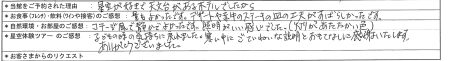 ●当館をご予約された理由：星空が好きで天文台があるホテルでしたから
●お食事（フレンチ）・飲料（ワインや接客）のご感想：量もよかったです。デザートや牛肉のステーキの皿の工夫がすばらしかったです。
●自然環境・お部屋のご感想：コテージ風で静かでよかったです。照明がいい感じでした。（灯りがあたたかい色）
●星空体験ツアーのご感想：子どもの時の気持ちに戻れました。寒い中ていねいな説明とおもてなしに感謝いたします。
ありがとうございました。
●お客さまからのリクエスト